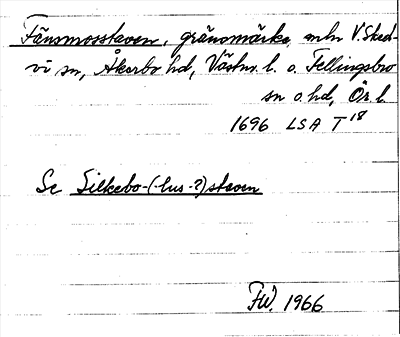 Fänsmosstaven, gränsmärke mln V. Sked-
vi sn, Åkerbo hd, Västm. l. o. Fellingsbro
sn o. hd, Ör. l.
1696 LSA T 18
Se Silkebo-(-hus-?)staven
FW. 1966